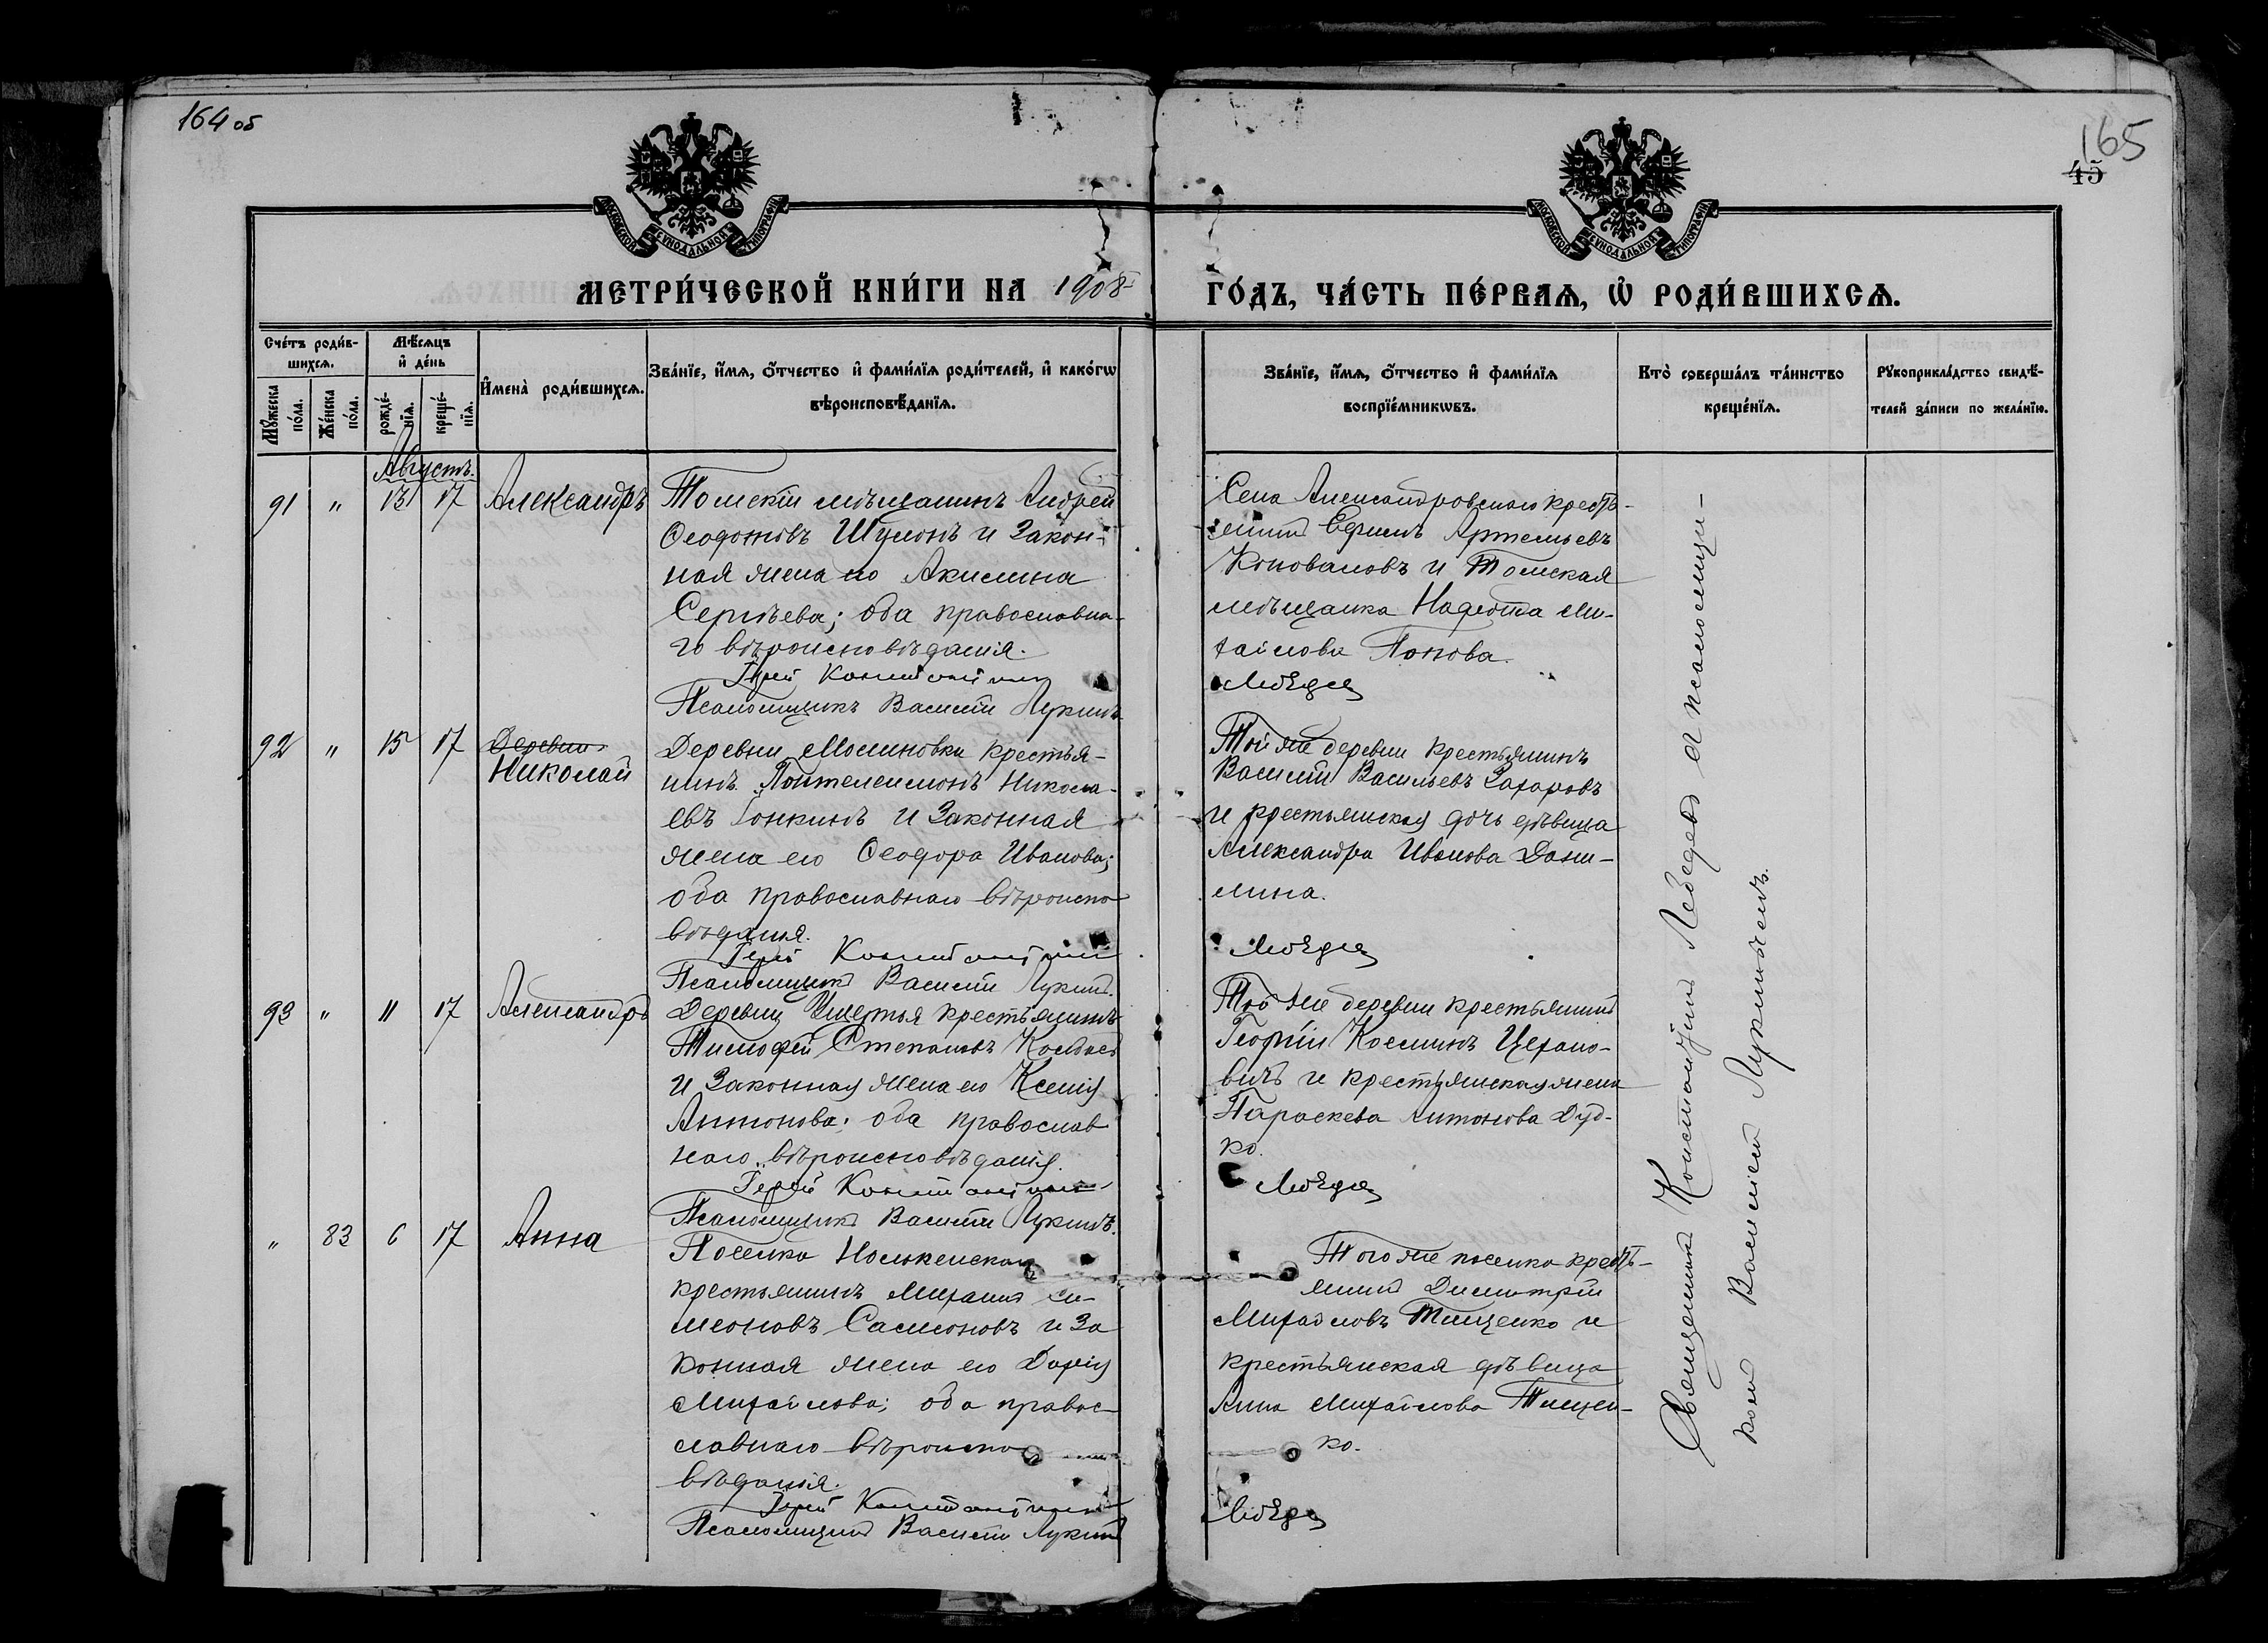 164 об
165
45
МОСКОВСКОЙ СѴНОДАЛЬНОЙ ТИПОГРАФІИ
МОСКОВСКОЙ СѴНОДАЛЬНОЙ ТИПОГРАФІИ
МЕТРИ́ЧЕСКОЙ КНИ́ГИ НА 1908
ГО́ДЪ, ЧА́СТЬ ПЕ́РВАѦ, Ѡ҆ РОДИ́ВШИХСѦ.
Сче́тъ роди́в-
шихсѧ.
Мѣ́сѧцъ
и҆ де́нь
Мꙋ́жеска
по́ла.
Же́нска
по́ла.
рожде́-
нїѧ.
креще́-
нїѧ.
И҆мена̀ роди́вшихсѧ.
Зва́нїе, и҆́мѧ, ѻ҆́тчество и҆ фами́лїѧ роди́телей, и҆ како́гѡ
вѣроисповѣ́данїѧ.
Зва́нїе, и҆́мѧ, ѻ҆́тчество и҆ фами́лїѧ
воспрїе́мникѡвъ.
Кто̀ соверша́лъ та́инство
креще́нїѧ.
Рꙋкоприкла́дство свидѣ́-
телей за́писи по жела́нїю.
Августъ.
91 " 13 17 Александръ
Томскій мѣщанинъ Андрей
Ѳеодотовъ Шумовъ и закон-
ная жена его Акилина
Сергѣева; оба православна-
го вѣроисповѣданія.
Іерей Константинъ
Псаломщикъ Василій Лукинъ
Села Александровскаго кресть-
янинъ Ефимъ Артемьевъ
Коноваловъ и Томская
мѣщанка Надежда Ми-
хайлова Попова.
Лебедев
92 " 15 17 Деревни
Николай
Деревни Малиновки крестья-
нинъ Пантелеимонъ Никола-
евъ Гонкинъ и законная
жена его Ѳеодора Иванова;
оба православнаго вѣроиспо-
вѣданія.
Іерей Константинъ
Псаломщикъ Василій Лукинъ.
Той же деревни крестьянинъ
Василій Васильевъ Захаровъ
и крестьянская дочь дѣвица
Александра Иванова Дани-
лина.
Лебедев
93 " 11 17 Александръ
Деревни крестьянинъ
Тимофей Степановъ
и законная жена его Ксенія
Антонова; оба православ
наго вѣроисповѣданія.
Іерей Константинъ
Псаломщикъ Василій Лукинъ.
Той же деревни крестьянинъ
Георгій Косминъ Цехано-
вичъ и крестьянская жена
Параскева Антонова Дуд-
ко.
Лебедев
" 83 6 17 Анна
Поселка
крестьянинъ Михаилъ Си-
меоновъ Самсоновъ и за
конная жена его Дарія
Михайлова; оба правос-
славнаго вѣроиспо
вѣданія.
Іерей Константинъ
Псаломщикъ Василій Лукинъ
Того же поселка кресть-
янинъ Димитрій
Михайловъ Тищенко и
крестьянская дѣвица
Анна Михайлова Тищен-
ко.
Лебедев
Священникъ Константинъ Лебедевъ с псаломщи-
комъ Василіемъ Лукинымъ.